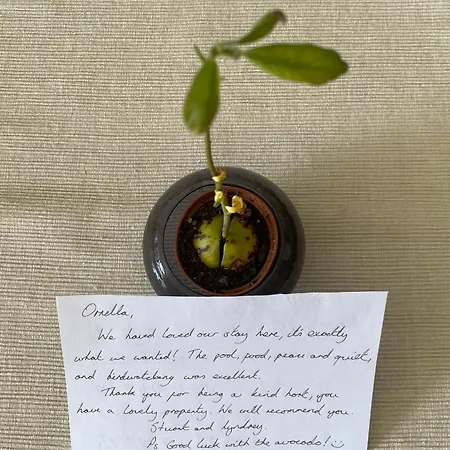 Ornella,
We have loved our stay here, it's exactly
what we wanted! The pool, food, peace and quiet,
and birdwatching was excellent.
Thank you for being a kind host, you
have a lovely property. We will recommend you.
Stuart and Lyndsey.
Ps Good luck with the avocado! ☺